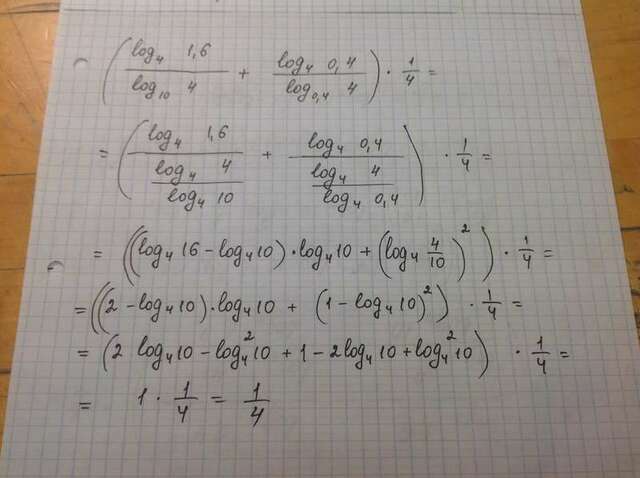 ( log₄ 1,6 / log₁₀ 4 + log₄ 0,4 / log₀,₄ 4 ) · 1/4 =
= ( log₄ 1,6 / (log₄ 4 / log₄ 10) + log₄ 0,4 / (log₄ 4 / log₄ 0,4) ) · 1/4 =
= ((log₄ 16 − log₄ 10) · log₄ 10 + (log₄ 4/10)²) · 1/4 =
= ((2 − log₄ 10) · log₄ 10 + (1 − log₄ 10)²) · 1/4 =
= (2 log₄ 10 − log₄² 10 + 1 − 2 log₄ 10 + log₄² 10) · 1/4 =
= 1 · 1/4 = 1/4